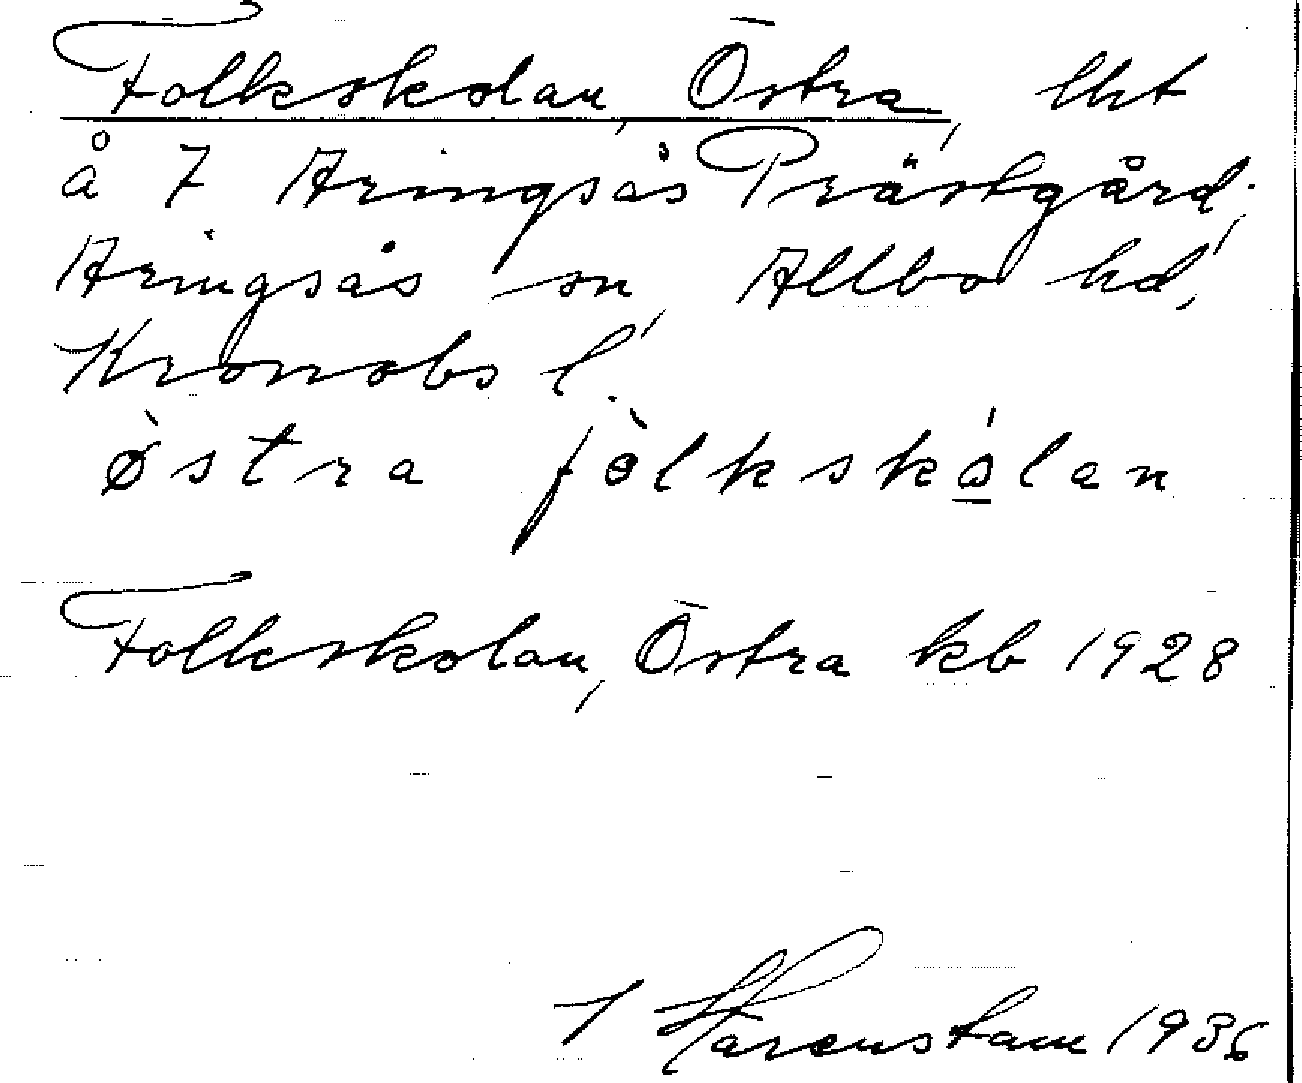 Folkskolan, Östra, lht
å 7 Aringsås Prästgård,
Aringsås sn, Allbo hd,
Kronobs l.
ø̀stra fòlkskólan
Folkskolan, Östra kb 1928
Harenstam 1936